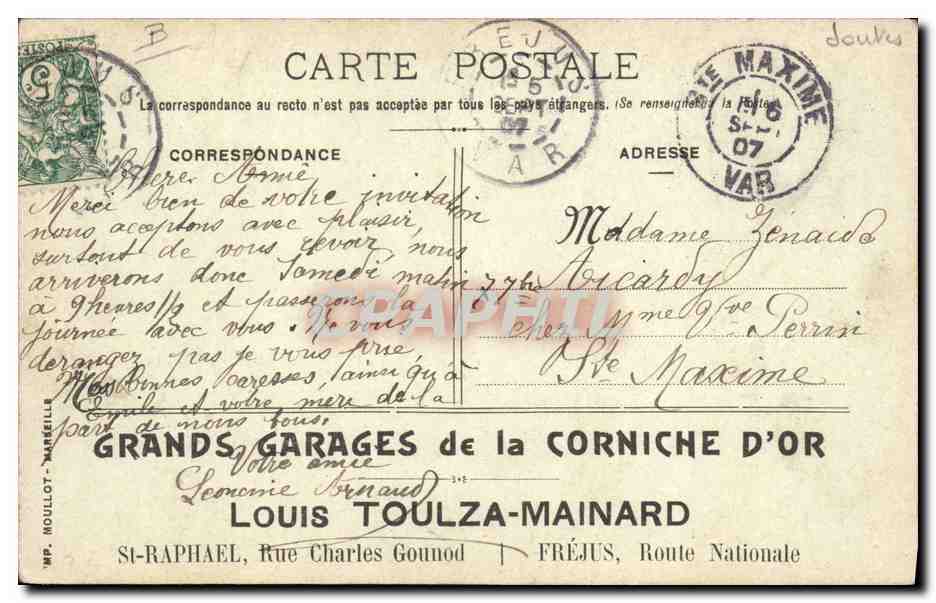 B
doubles
POSTES
5
FREJUS
15
SEPT
07
VAR
STE MAXIME
16
SEPT
07
VAR
CARTE POSTALE
La correspondance au recto n'est pas acceptée par tous les pays étrangers. (Se renseigner à la Poste)
CORRESPONDANCE
ADRESSE
Chère Amie
Merci bien de votre invitation
nous acceptons avec plaisir,
surtout de vous revoir, nous
arriverons donc Samedi matin
à 9 heures 1/2 et passerons la
journée avec vous. Ne vous
derangez pas je vous prie,
Mes bonnes caresses, ainsi qu'à
Emile et votre mère de la
part de nous tous.
Votre amie
Leoncine Arnaud
Madame Zénaide
Vicardy
chez Mme Vve Perrin
Ste Maxime
CPAPHIL
GRANDS GARAGES de la CORNICHE D'OR
LOUIS TOULZA-MAINARD
St-RAPHAEL, Rue Charles Gounod | FRÉJUS, Route Nationale
IMP. MOULLOT - MARSEILLE